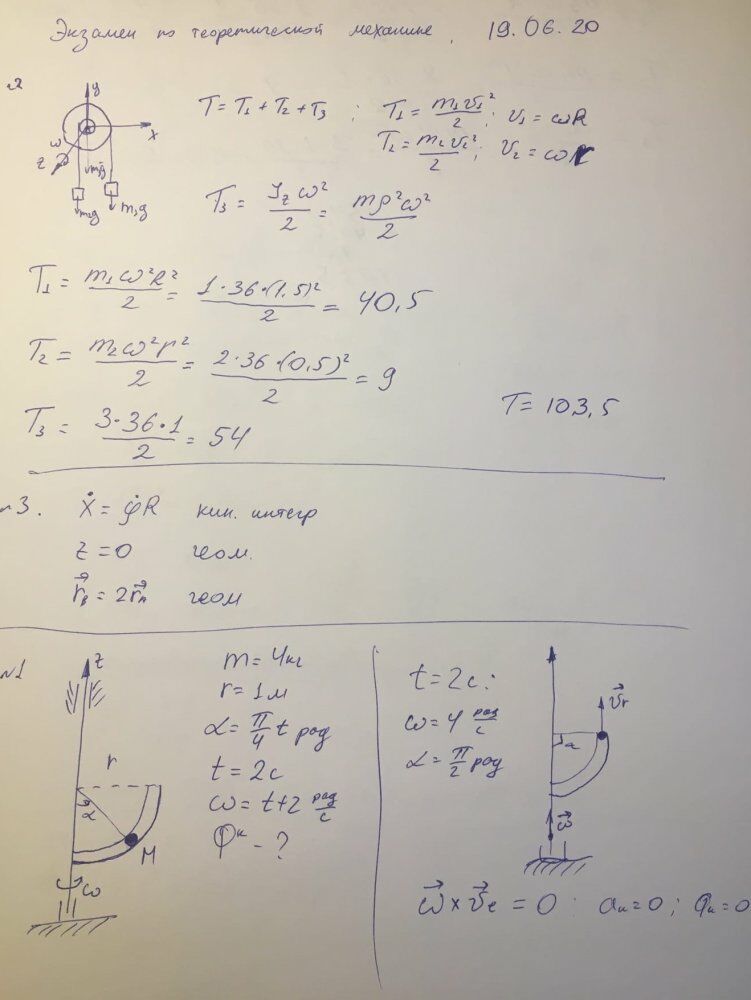 Экзамен по теоретической механике. 19.06.20
№2
y
x
z
ω
m₃g
m₂g
m₁g
T = T₁ + T₂ + T₃ ; T₁ = m₁v₁²/2 ; v₁ = ωR
T₂ = m₂v₂²/2 ; v₂ = ωr
T₃ = J_z ω²/2 = mρ²ω²/2
T₁ = m₁ω²R²/2 = 1·36·(1,5)²/2 = 40,5
T₂ = m₂ω²r²/2 = 2·36·(0,5)²/2 = 9
T₃ = 3·36·1/2 = 54
T = 103,5
№3. ẋ = φ̇R кин. интегр
z = 0 геом.
r⃗_B = 2r⃗_A геом
№1
z
r
α
M
ω
m = 4кг
r = 1м
α = π/4 t рад
t = 2с
ω = t+2 рад/с
Φᵏ - ?
t = 2с:
ω = 4 рад/с
α = π/2 рад
v⃗r
α
ω⃗
ω⃗ × v⃗e = 0 : aₖ = 0 ; Φₖ = 0